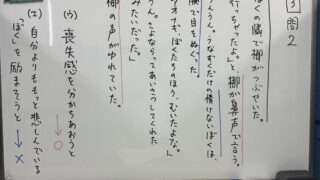 ③ 問2
ぼくの隣で梛がつぶやいた。
行っちゃったよ」と梛が鼻声で言う。
うんうん。うなずくだけの情けないぼくは、
腕で目をぬぐった。
アオナギ、ぼくたちのほう、むいたよな。」
うん。さよならってあいさつしてくれた
みたいだった。」
梛の声がゆれていた。
(ウ) 喪失感を分かちあおうと → ○
(エ) 自分よりももっと悲しんでいる
「ぼく」を励まそうと → ×